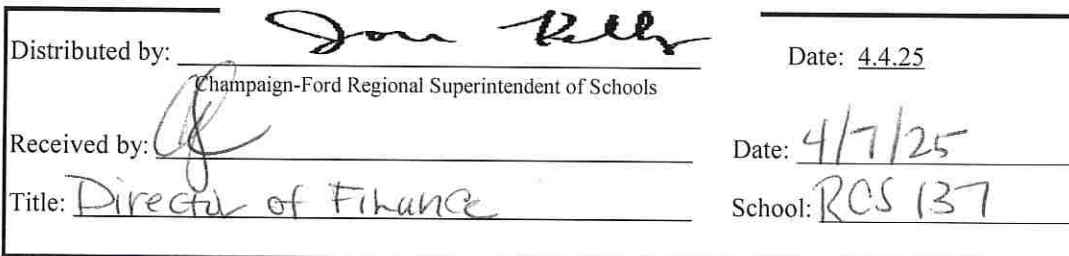 Distributed by: Date: 4.4.25
Champaign-Ford Regional Superintendent of Schools
Received by: Date: 4/7/25
Title: Director of Finance School: RCS 137